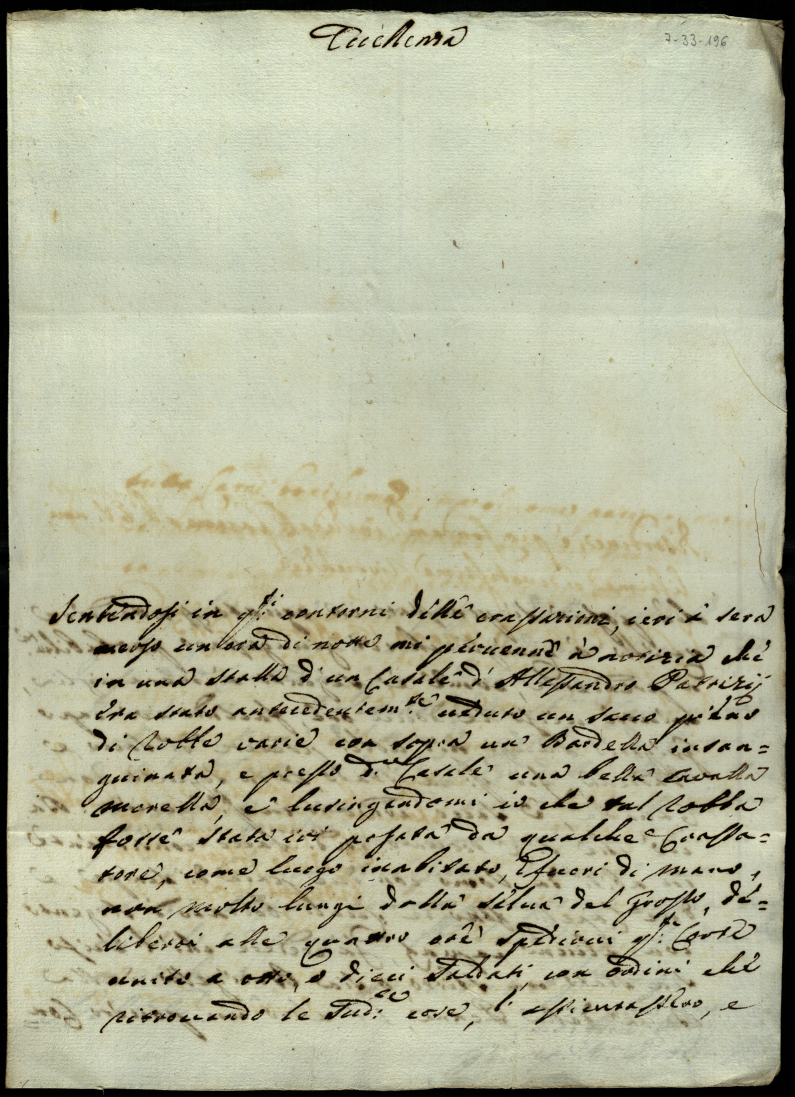 Eccellenza
7-33-196
Sentendosi in q.ti contorni delle crassazioni, ieri à sera
mezzo un ora di notte mi pervenne à notizia che
in una stalla d'un Casale d'Allessandro Patrizij
era stato antecedentem.te veduto un sacco pieno
di robbe varie con sopra una Bardella insan=
guinata, e presso d.o Casale una bella cavalla
morella, e lusingandomi io che tal robba
fosse stata ivi posata da qualche Crassa=
tore, come luogo inabitato, e fuori di mano,
non molto lungi dalla selva del Grosso, de=
liberai alle quattro ore spedirvi q.ta Corte
unito a otto, o dieci Soldati, con ordini che
ritrovando le sud.e cose, l'assicurassero, e